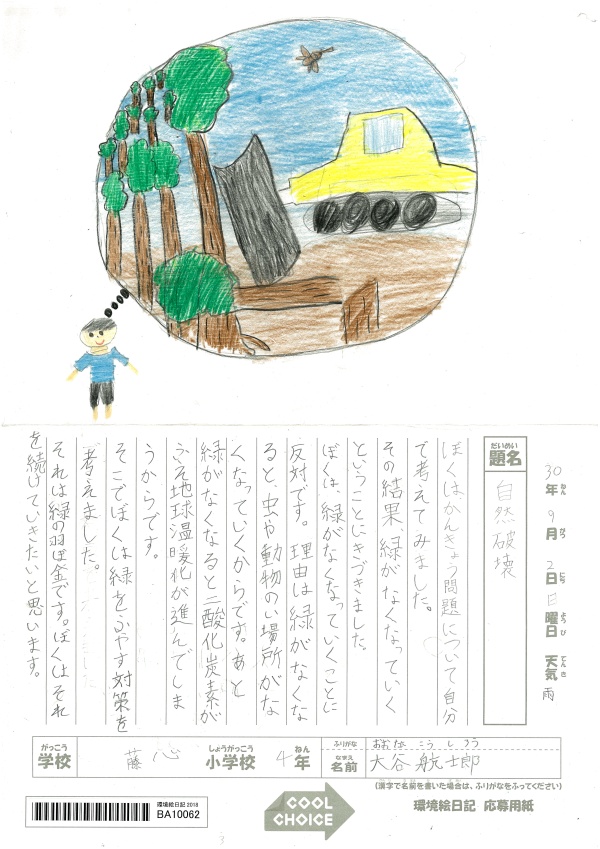 30年 9月 2日 日曜日 天気 雨
ねん がつ にち ようび てんき
だいめい
題名
自然破壊
ぼくはかんきょう問題について自分
で考えてみました。
その結果、緑がなくなっていく
ということにきづきました。
ぼくは、緑がなくなっていくことに
反対です。理由は緑がなくな
ると、虫や動物のい場所がな
くなっていくからです。あと
緑がなくなると二酸化炭素が
ふえ地球温暖化が進んでしま
うからです。
そこでぼくは緑をふやす対策を
考えました。
それは緑の羽ぼ金です。ぼくはそれ
を続けていきたいと思います。
がっこう しょうがっこう ねん ふりがな おおたに こうしろう
学校 藤心 小学校 4年 なまえ 名前 大谷航士郎
(漢字で名前を書いた場合は、ふりがなをふってください)
環境絵日記 2018
BA10062
COOL
CHOICE
環境絵日記 応募用紙